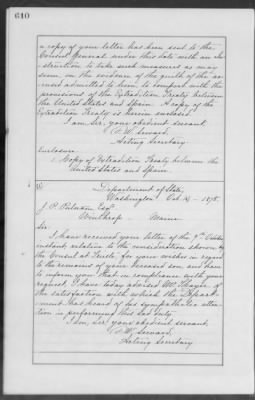 610
a copy of your letter has been sent to the
Consul General under this date with an in-
struction to take such measures as may
seem, on the evidence of the guilt of the ac-
cused admitted to him, to comport with the
provisions of the Extradition Treaty between
the United States and Spain. A copy of the
Extradition Treaty is herein enclosed.
I am, Sir, your obedient servant,
F. W. Seward,
Acting Secretary.
Enclosure.
Copy of Extradition Treaty between the
United States and Spain.
Department of State,
Washington, Oct. 1878.
J. P. Esqr.
Winthrop Maine
Sir:
I have received your letter of the 9th October
instant, relative to the consideration shown by
the Consul at for your wishes in regard
to the remains of your deceased son, and have
to inform you that in compliance with your
request, I have today advised Mr. Thayer of
the satisfaction with which the Depart-
ment has heard of his sympathetic atten-
tion in performing this sad duty.
I am, sir, your obedient servant,
F. W. Seward,
Acting Secretary